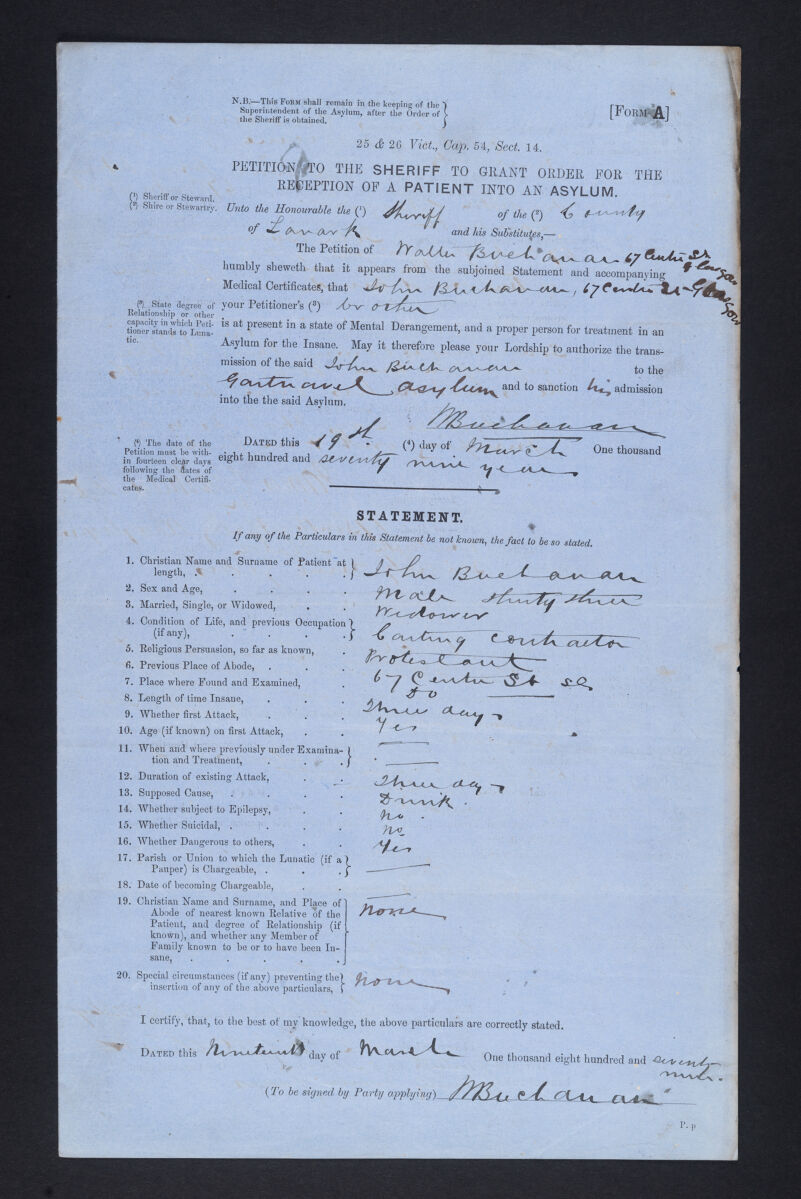 N.B.—This Form shall remain in the keeping of the
Superintendent of the Asylum, after the Order of
the Sheriff is obtained.
[Form A]
25 & 26 Vict., Cap. 54, Sect. 14.
PETITION TO THE SHERIFF TO GRANT ORDER FOR THE
RECEPTION OF A PATIENT INTO AN ASYLUM.
(1) Sheriff or Steward.
(2) Shire or Stewartry.
Unto the Honourable the (1) Sheriff of the (2) County
of Lanark and his Substitutes,—
The Petition of Walter Buchanan 67 Centre St Glasgow
humbly sheweth that it appears from the subjoined Statement and accompanying
Medical Certificates, that John Buchanan, 67 Centre St Glasgow
(3) State degree of
Relationship or other
capacity in which Peti-
tioner stands to Luna-
tic.
your Petitioner's (3) brother
is at present in a state of Mental Derangement, and a proper person for treatment in an
Asylum for the Insane. May it therefore please your Lordship to authorize the trans-
mission of the said John Buchanan to the
Gartnavel asylum and to sanction his admission
into the the said Asylum.
WBuchanan
(4) The date of the
Petition must be with-
in fourteen clear days
following the dates of
the Medical Certifi-
cates.
Dated this 19th. (4) day of March One thousand
eight hundred and seventy nine years
STATEMENT.
If any of the Particulars in this Statement be not known, the fact to be so stated.
1. Christian Name and Surname of Patient at
length, . . . . . John Buchanan
2. Sex and Age, . . . . Male thirty three
3. Married, Single, or Widowed, . . Widower
4. Condition of Life, and previous Occupation
(if any), . . . . Carting contractor
5. Religious Persuasion, so far as known, . Protestant
6. Previous Place of Abode, . . . 67 Centre St
7. Place where Found and Examined, . Do
8. Length of time Insane, . . . Three days
9. Whether first Attack, . . . Yes
10. Age (if known) on first Attack, . . —
11. When and where previously under Examina-
tion and Treatment, . . . —
12. Duration of existing Attack, . . Three days
13. Supposed Cause, . . . . Drink.
14. Whether subject to Epilepsy, . . No.
15. Whether Suicidal, . . . . No
16. Whether Dangerous to others, . . Yes
17. Parish or Union to which the Lunatic (if a
Pauper) is Chargeable, . . . —
18. Date of becoming Chargeable, . . —
19. Christian Name and Surname, and Place of
Abode of nearest known Relative of the
Patient, and degree of Relationship (if
known), and whether any Member of
Family known to be or to have been In-
sane, . . . . . none
20. Special circumstances (if any) preventing the
insertion of any of the above particulars, none
I certify, that, to the best of my knowledge, the above particulars are correctly stated.
Dated this Nineteenth day of March One thousand eight hundred and seventy
nine.
(To be signed by Party applying) WBuchanan
P. p